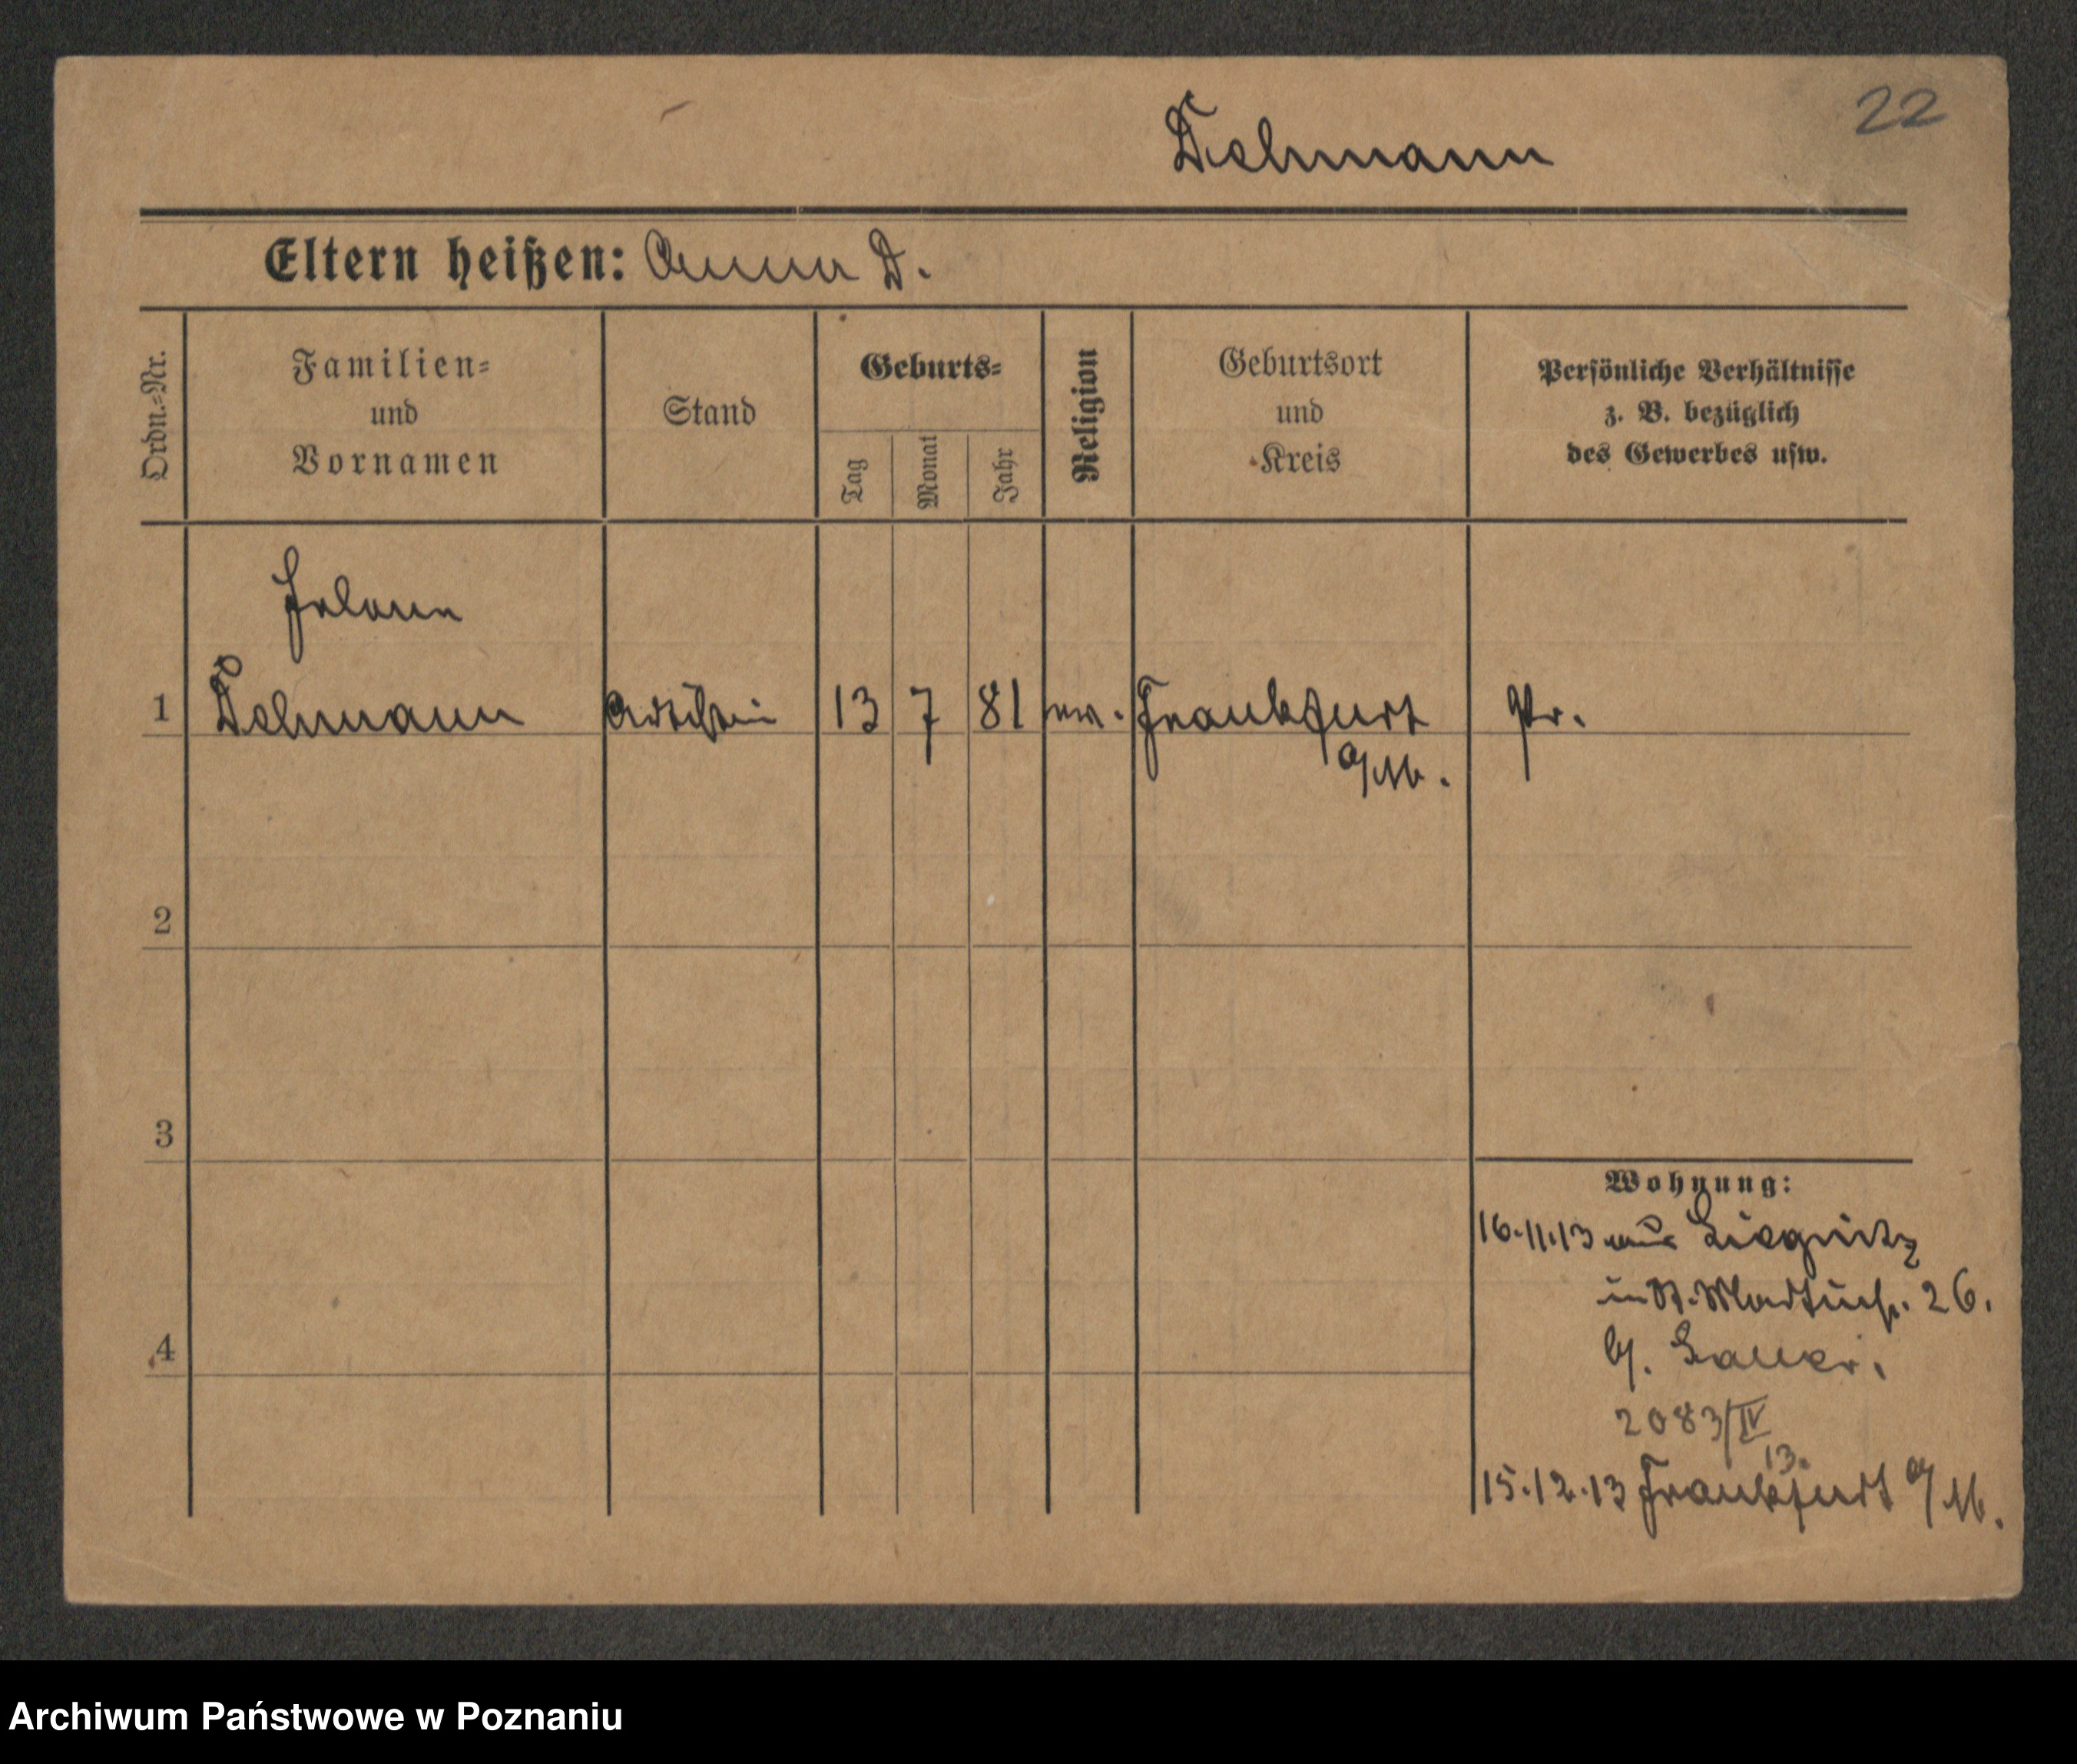 22
Dehmann
Eltern heißen: Anna D.
Ordn.=Nr.
Familien=
und
Vornamen
Stand
Geburts=
Tag
Monat
Jahr
Religion
Geburtsort
und
Kreis
Persönliche Verhältnisse
z. B. bezüglich
des Gewerbes usw.
1
Dehmann
Artistin
13
7
81
ev.
Frankfurt
a/M.
Pr.
2
3
4
Wohnung:
16.11.13 aus Liegnitz
in St. Martinstr. 26.
b/.
2083/IV
13.
15.12.13 Frankfurt a/M.
Archiwum Państwowe w Poznaniu